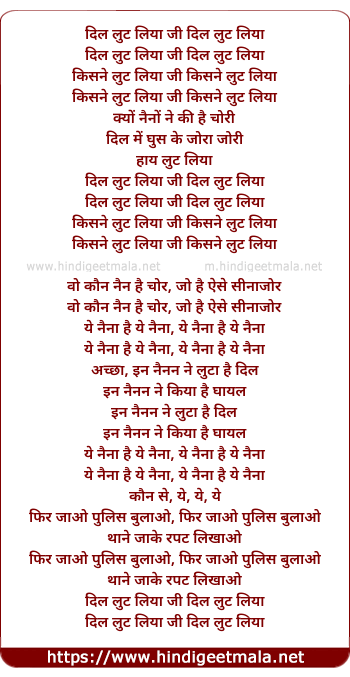 दिल लुट लिया जी दिल लुट लिया
दिल लुट लिया जी दिल लुट लिया
किसने लुट लिया जी किसने लुट लिया
किसने लुट लिया जी किसने लुट लिया
क्यों नैनों ने की है चोरी
दिल में घुस के जोरा जोरी
हाय लुट लिया
दिल लुट लिया जी दिल लुट लिया
दिल लुट लिया जी दिल लुट लिया
किसने लुट लिया जी किसने लुट लिया
किसने लुट लिया जी किसने लुट लिया
www.hindigeetmala.net m.hindigeetmala.net
वो कौन नैन है चोर, जो है ऐसे सीनाजोर
वो कौन नैन है चोर, जो है ऐसे सीनाजोर
ये नैना है ये नैना, ये नैना है ये नैना
ये नैना है ये नैना, ये नैना है ये नैना
अच्छा, इन नैनन ने लुटा है दिल
इन नैनन ने किया है घायल
इन नैनन ने लुटा है दिल
इन नैनन ने किया है घायल
ये नैना है ये नैना, ये नैना है ये नैना
ये नैना है ये नैना, ये नैना है ये नैना
कौन से, ये, ये, ये
फिर जाओ पुलिस बुलाओ, फिर जाओ पुलिस बुलाओ
थाने जाके रपट लिखाओ
फिर जाओ पुलिस बुलाओ, फिर जाओ पुलिस बुलाओ
थाने जाके रपट लिखाओ
दिल लुट लिया जी दिल लुट लिया
दिल लुट लिया जी दिल लुट लिया
https://www.hindigeetmala.net